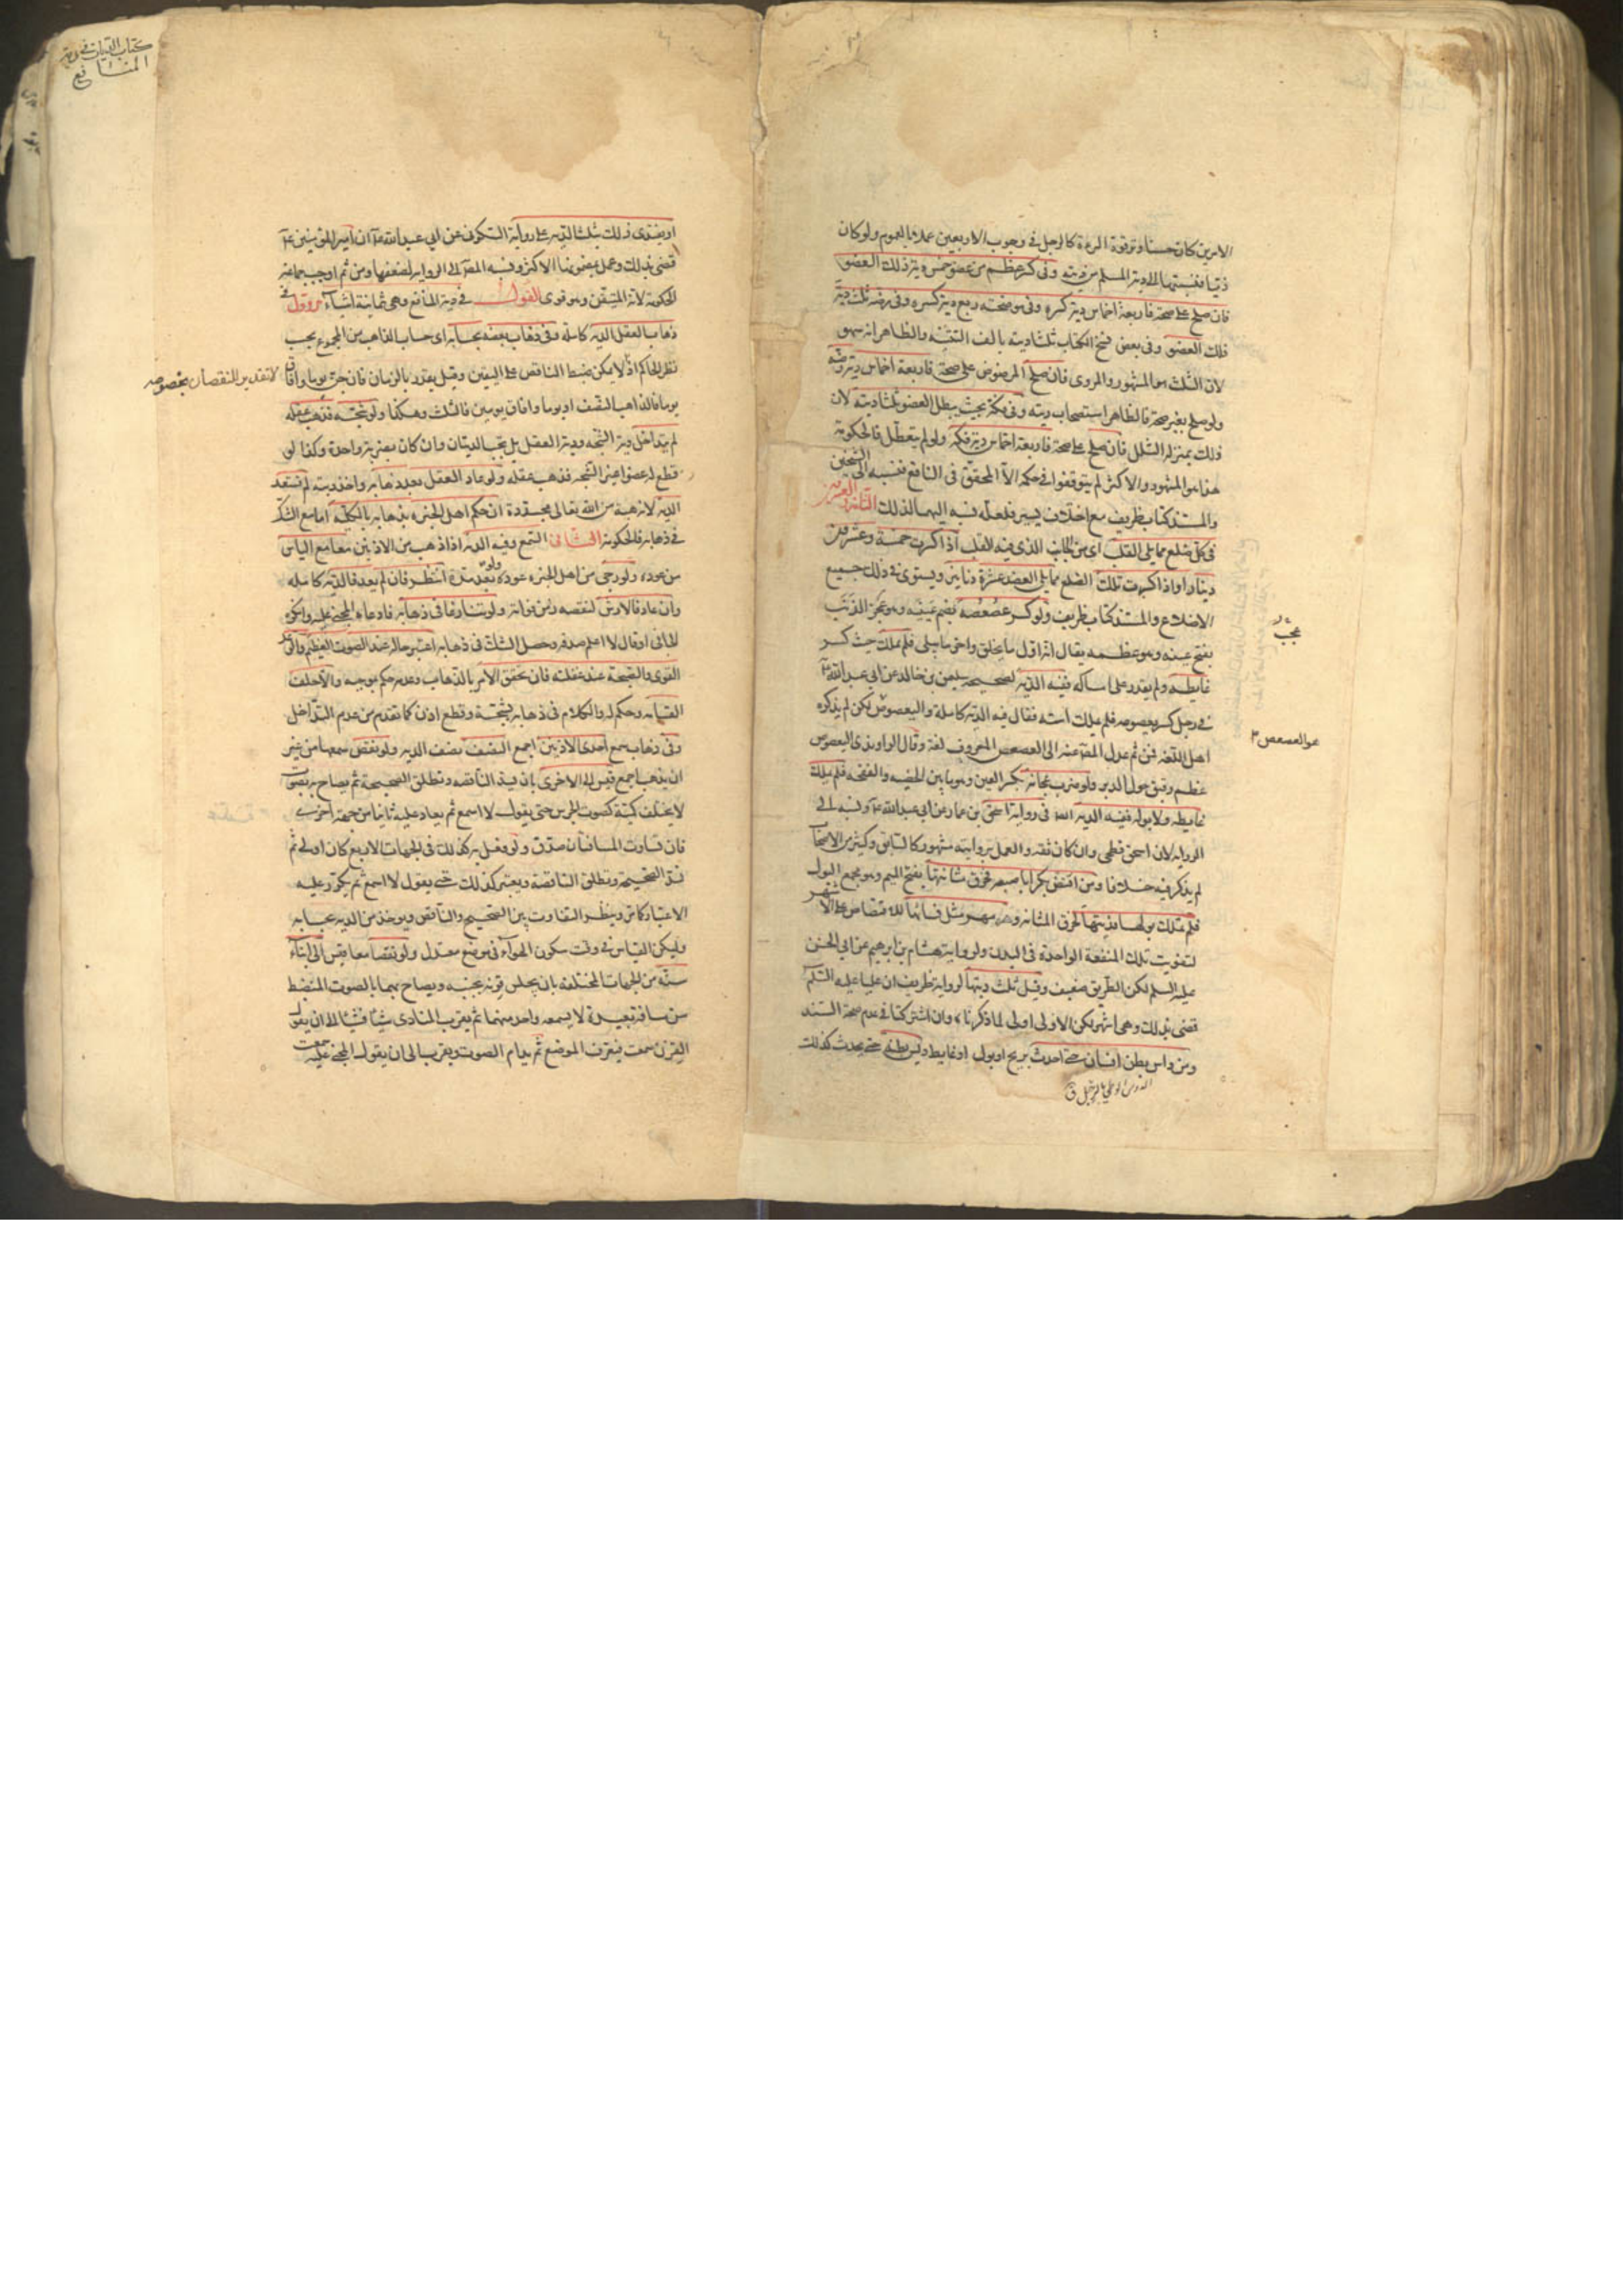 الامرين كان حسنا وترقوة المرءة كالرجل في وجوب الاربعين عملا بالعموم ولو كان
ذميا فنسبتها الى دية المسلم من ديته وفي كسر عظم من عضو خمس دية ذلك العضو
فان صلح على صحة فاربعة اخماس دية كسره وفي موضحته ربع دية كسره وفي رضه ثلث دية
ذلك العضو وفي بعض نسخ الكتاب ثلثا ديته بالف التثنيه والظاهر انه سهو
لان الثلث هو المشهور والمروى فان صلح المرضوض على صحة فاربعة اخماس دية رضه
ولو صلح بغير صحة فالظاهر استصحاب ديته وفي فكه بحيث يبطل العضو ثلثا ديته لان
ذلك بمنزلة الشلل فان صلح على صحة فاربعة اخماس دية فكه ولو لم يتعطل فالحكومة
هذا هو المشهور والاكثر لم يتوقفوا في حكمه الا المحقق في النافع فنسبه الى الشيخين
والمستند كتاب ظريف مع اختلاف يسير فلعله نسبه اليهما لذلك الثانية والعشرون
في كل ضلع مما يلي القلب اى من الجانب الذى فيه القلب اذا كسرت خمسة وعشرون
دينارا واذا كسرت تلك الضلع مما يلي العضد عشرة دنانير ويستوى في ذلك جميع
الاضلاع والمستند كتاب ظريف ولو كسر عصعصه بضم عينيه وهو عجب الذنب
عجب
بفتح عينه وهو عظمه يقال انه اول ما يخلق واخر ما يبلى فلم يملك حيث كسر
غايطه ولم يقدر على امساكه ففيه الدية لصحيحة سليمن بن خالد عن ابي عبد الله ع
في رجل كسر بعصوصه فلم يملك استه فقال فيه الدية كاملة والبعصوص لكن لم يذكره
هو العصعص
اهل اللغة فمن ثم عدل المص عنه الى العصعص المعروف لغة وقال الراوندى البعصوص
عظم رقيق حول الدبر ولو ضرب عجانه بكسر العين وهو ما بين الخصيه والفقحه فلم يملك
غايطه ولا بوله ففيه الدية ايضا في رواية اسحق بن عمار عن ابي عبد الله ع ونسبه الى
الرواية لان اسحق فطحى وان كان ثقه والعمل بروايته مشهور كالسابق وكثير من الاصحاب
لم يذكر فيه خلافا ومن افتض بكرا باصبعه فخرق مثانتها بفتح الميم وهو مجمع البول
فلم تملك بولها فديتها لخرق المثانه ومهر مثل نسائها للافتضاض على الاشهر
لتفويت تلك المنفعة الواحدة في البدن ولرواية هشام بن ابرهيم عن ابي الحسن
عليه السلم لكن الطريق ضعيف وقيل ثلث ديتها لرواية ظريف ان عليا عليه السلم
قضى بذلك وهي اشهر لكن الاولى اولى لما ذكرناه وان اشتركتا في عدم صحة السند
ومن داس بطن انسان حتى احدث بريح او بول او غايط ديس بطنه حتى يحدث كذلك
الدوس الوطي بالرجل ق
كتاب الديات في دية
المنافع
او يفتدى ذلك بثلث الدية على رواية السكونى عن ابي عبد الله ع ان امير المؤمنين ع
قضى بذلك وعمل بمضمونها الاكثر ونسبه المص الى الرواية لضعفها ومن ثم اوجب جماعة
الحكومة لانه المتيقن وهو قوى القول في دية المنافع وهي ثمانية اشياء الاول في
ذهاب العقل الدية كاملة وفي ذهاب بعضه بحسابه اى حساب الذاهب من المجموع بحسب
نظر الحاكم اذ لا يمكن ضبط الناقص على اليقين وقيل يقدر بالزمان فان جن يوما وافاق
لا تقدير للنقصان بخصوصه
يوما فالذاهب النصف او يوما وافاق يومين فالثلث وهكذا ولو شجه فذهب عقله
لم يتداخل دية الشجه ودية العقل بل يجب الديتان وان كان بضربة واحدة وكذا لو
قطع له عضوا غير الشجه فذهب عقله ولو عاد العقل بعد ذهابه واخذ ديته لم تستعد
الدية لانه هبة من الله تعالى مجددة ان حكم اهل الخبره بذهابه بالكلية اما مع الشك
في ذهابه فالحكومة الثاني السمع وفيه الدية اذا ذهب من الاذنين معا مع الياس
من عوده ولو رجى من اهل الخبره عوده ولو بعد مدة انتظر فان لم يعد فالدية كاملة
وان عاد فالارش لنقصه زمن فواته ولو تنازعا في ذهابه فادعاه المجنى عليه وانكره
الجاني او قال لا اعلم صدقه وحصل الشك في ذهابه اعتبر حاله عند الصوت العظيم والرعد
القوى والصيحة عند غفلته فان تحقق الامر بالذهاب وعدمه حكم بموجبه والا حلف
القسامة وحكم له والكلام في ذهابه بشجة وقطع اذن كما تقدم من عدم التداخل
وفي ذهاب سمع احدى الاذنين اجمع النصف نصف الدية ولو نقص سمعها من غير
ان يذهب اجمع قيس الى الاخرى بان يسد الناقصه وتطلق الصحيحة ثم يصاح به بصوت
لا يختلف كمية كصوت الجرس حتى يقول لا اسمع ثم يعاد عليه ثانيا من جهة اخرى
فان تساوت المسافتان صدق ولو فعل به كذلك في الجهات الاربع كان اولى ثم
تسد الصحيحة وتطلق الناقصة ويعتبر كذلك حتى يقول لا اسمع ثم يكرر عليه
الاعتبار كما مر وينظر التفاوت بين الصحيح والناقص ويوخذ من الدية بحسابه
وليكن القياس في وقت سكون الهواء في موضع معتدل ولو نقصا معا قيس الى ابناء
سنه من الجهات المختلفه بان يجلس قرنه بجنبه ويصاح بهما بالصوت المنضبط
من مسافة بعيدة لا يسمعه واحد منهما ثم يقرب المنادى شيئا فشيئا الى ان يقول
القرن سمعت فيعرف الموضع ثم يدام الصوت ويقرب الى ان يقول المجنى عليه سمعت